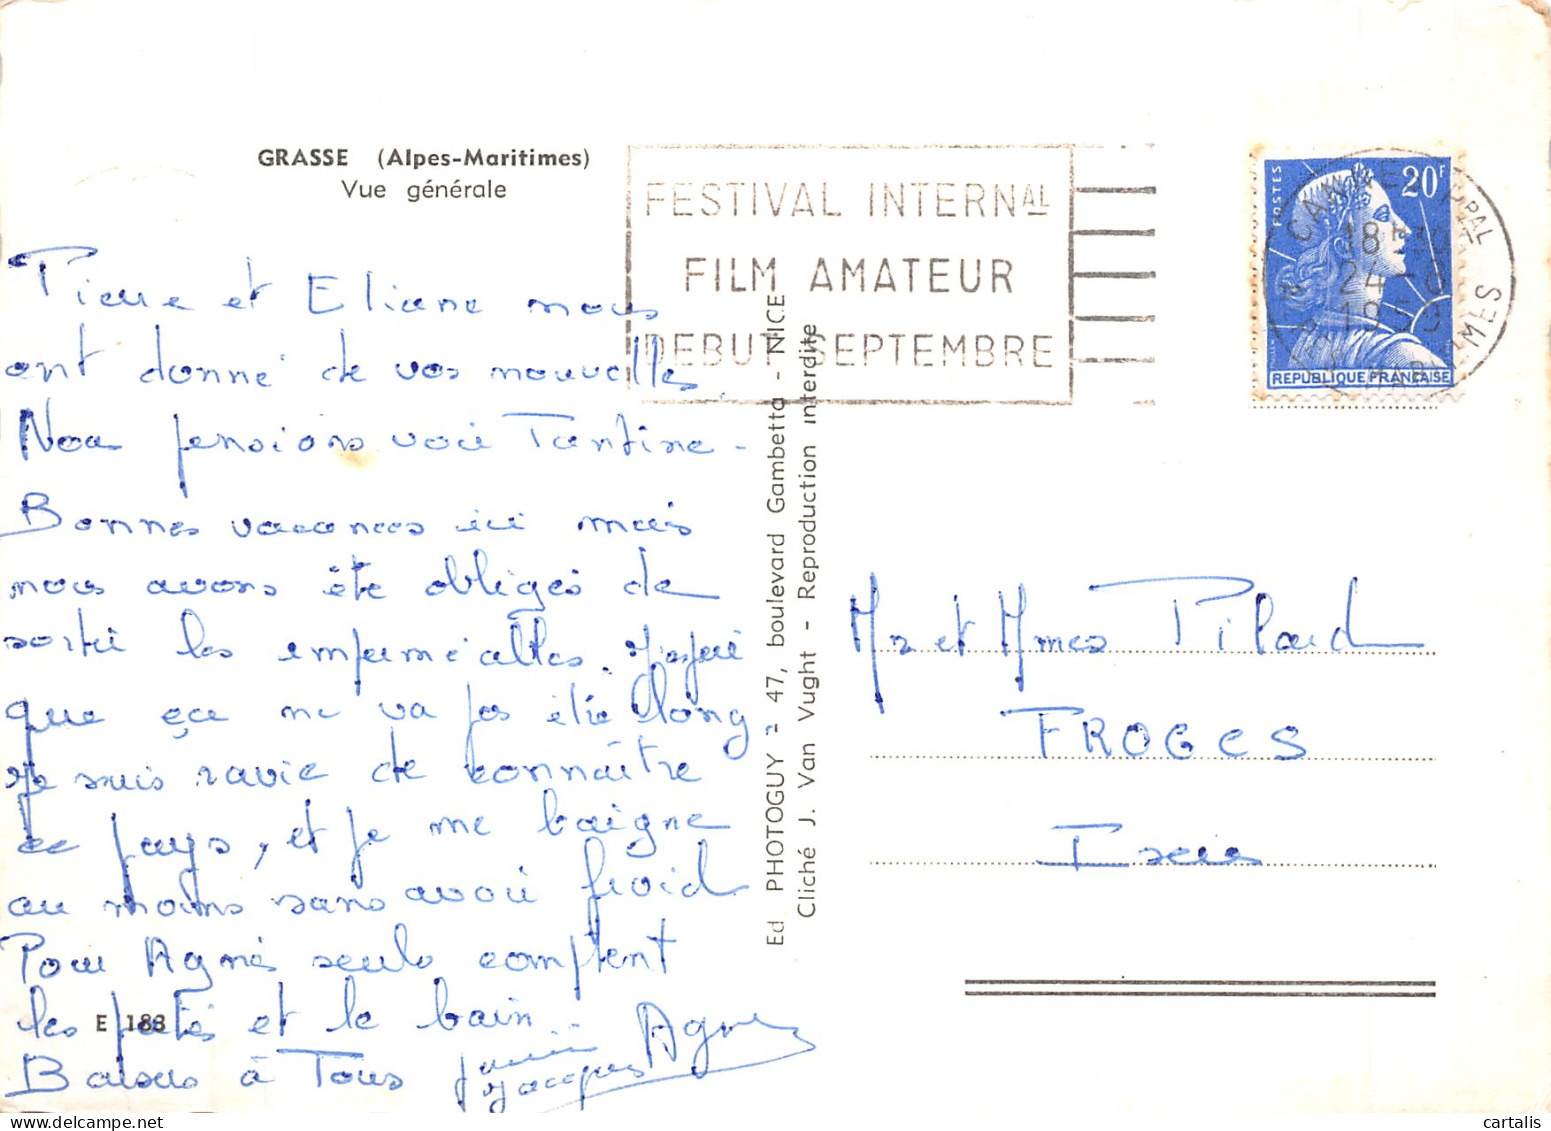 GRASSE (Alpes-Maritimes)
Vue générale
Pierre et Eliane nous
ont donné de vos nouvelles.
Nous pensions voir Tantine -
Bonnes vacances ici mais
nous avons été obligés de
sortir les imperméables. J'espère
que ça ne va pas être long
Je suis ravie de connaître
ce pays, et je me baigne
au moins sans avoir froid
Pour Agnès seuls comptent
les patés et le bain...
Baisers à Tous
Jacques Agnès
E 188
Ed PHOTOGUY - 47, boulevard Gambetta - NICE
Cliché J. Van Vught - Reproduction interdite
FESTIVAL INTERNAL
FILM AMATEUR
DEBUT SEPTEMBRE
POSTES
20F
REPUBLIQUE FRANCAISE
CANNES PPAL
18H
24-8
1959
Mr et Mmes Pilard
FROGES
Isère
cartalis